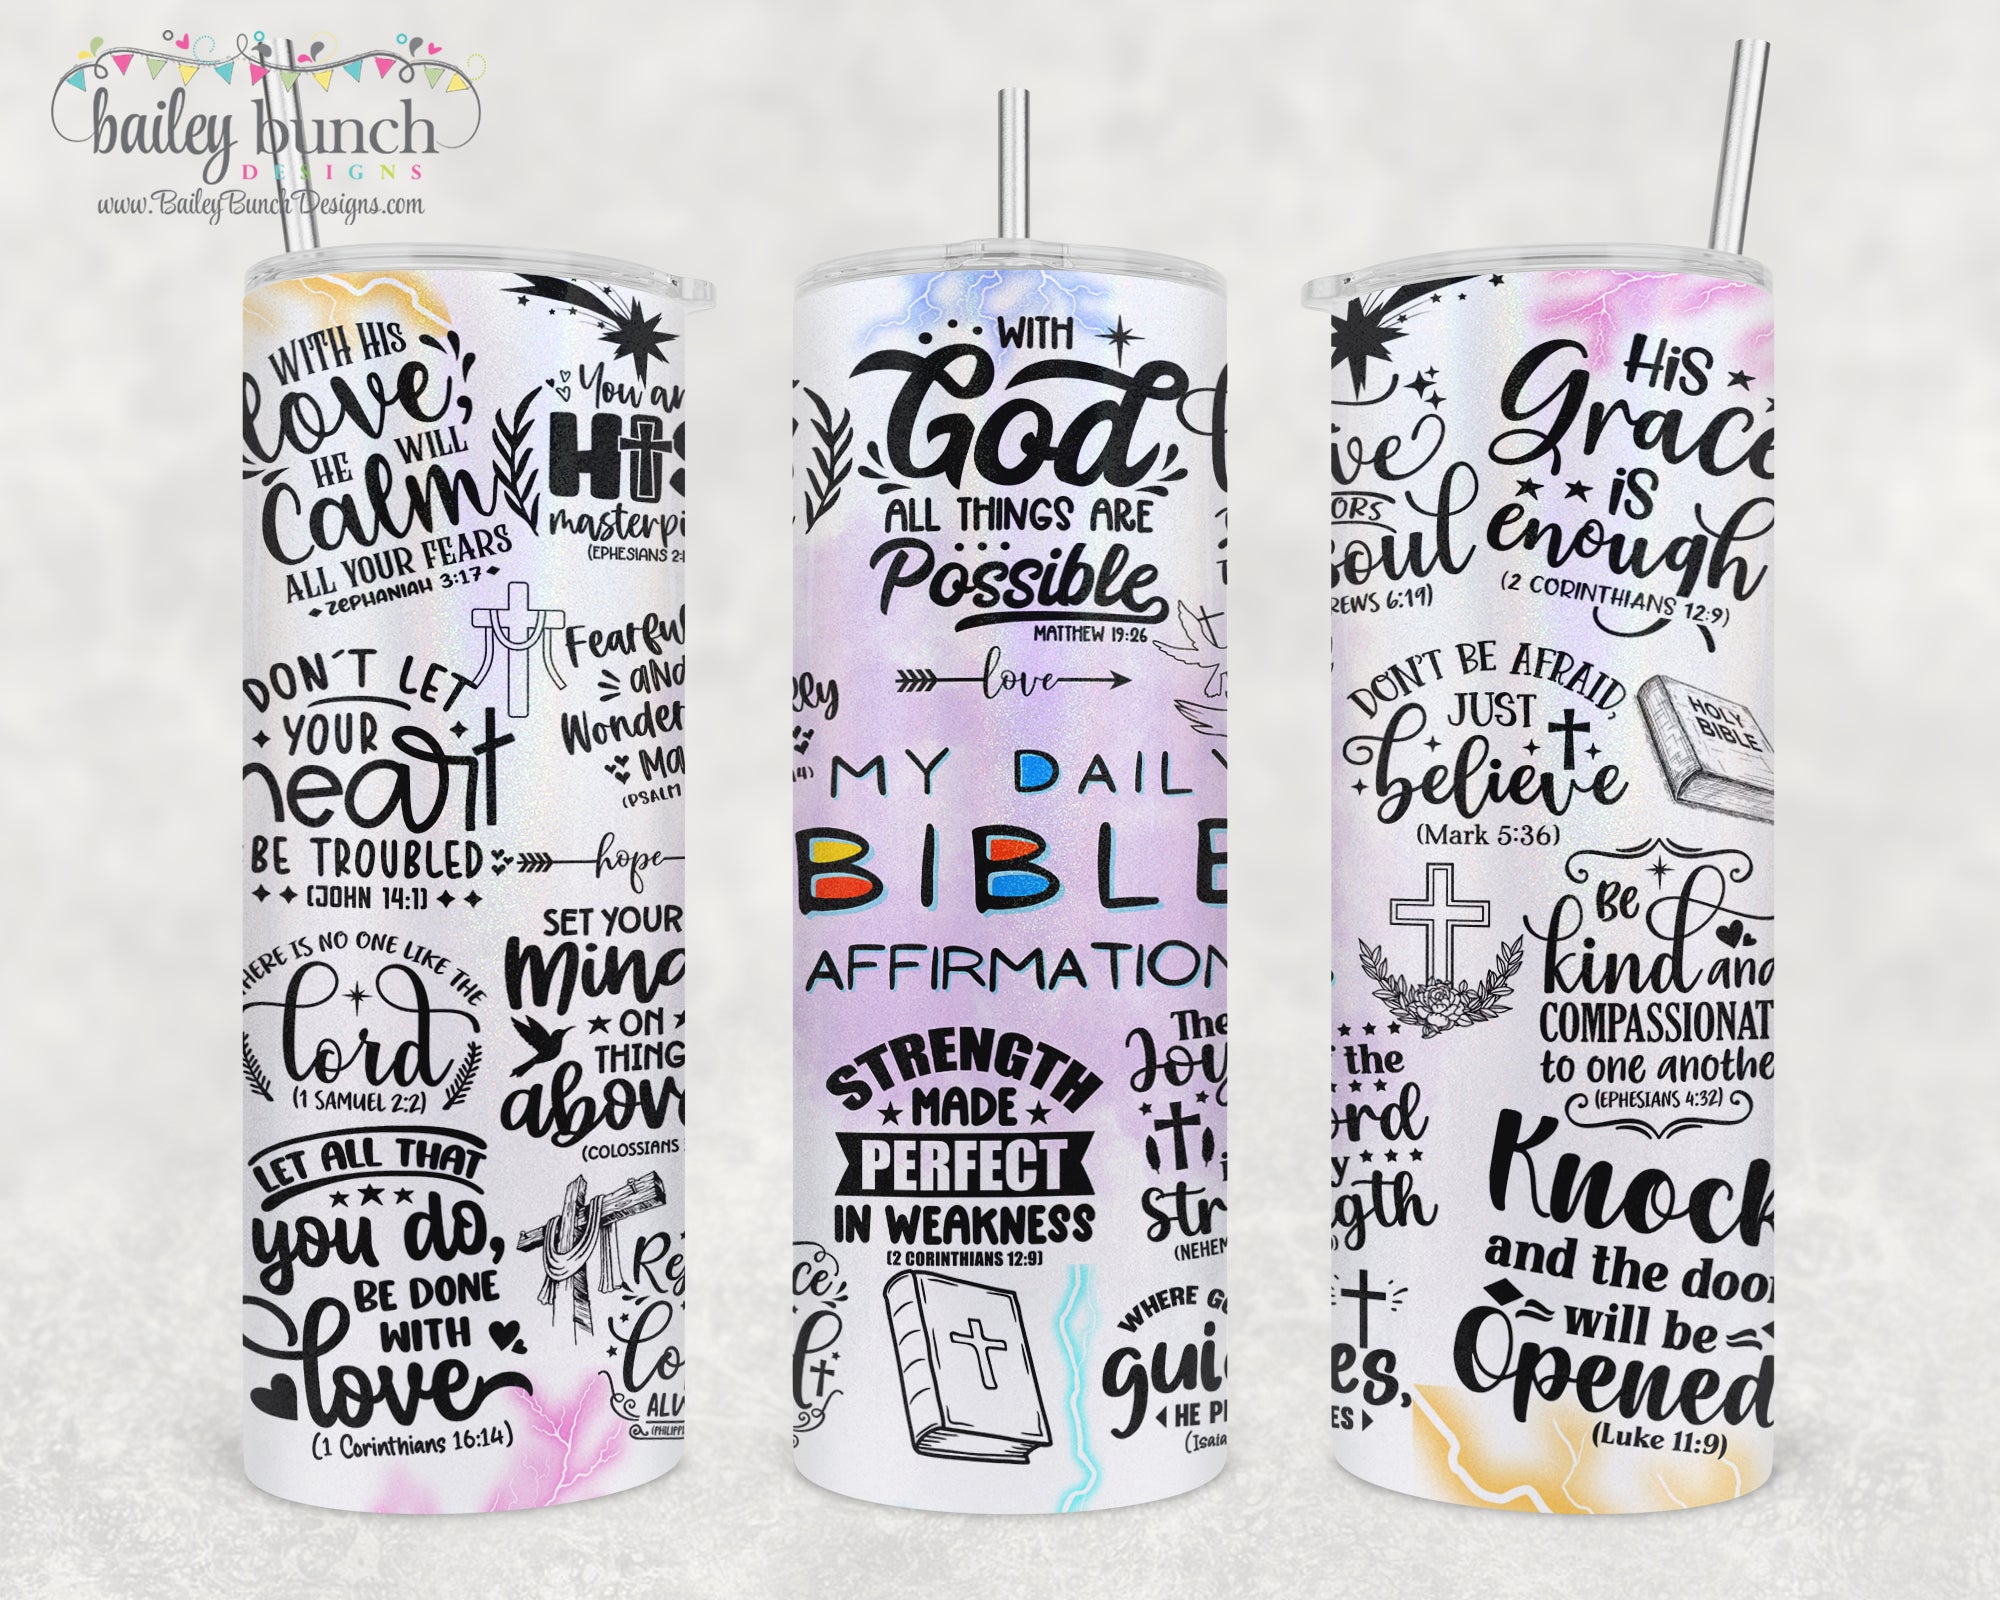 bailey bunch
DESIGNS
www.BaileyBunchDesigns.com
WITH HIS
love,
HE WILL
Calm
ALL YOUR FEARS
ZEPHANIAH 3:17
You ar
HIS
masterpi
(EPHESIANS 2:
DON´T LET
YOUR
heart
BE TROUBLED
(JOHN 14:1)
Fearful
AND
Wonder
Ma
(PSALM
hope
THERE IS NO ONE LIKE THE
Lord
(1 SAMUEL 2:2)
SET YOUR
Mind
ON
THING
above
(COLOSSIANS
LET ALL THAT
you do,
BE DONE
WITH
love
(1 Corinthians 16:14)
Re
ALW
WITH
God
ALL THINGS ARE
Possible
MATTHEW 19:26
love
MY DAILY
BIBLE
AFFIRMATION
STRENGTH
MADE
PERFECT
IN WEAKNESS
(2 CORINTHIANS 12:9)
The
Joy
Str
(NEHEM
WHERE GO
gui
HE P
(Isaia
ORS
soul
REWS 6:19)
HIS
Grace
is
enough
(2 CORINTHIANS 12:9)
DON'T BE AFRAID,
JUST
believe
(Mark 5:36)
HOLY
BIBLE
Be
kind and
COMPASSIONAT
to one anothe
(EPHESIANS 4:32)
the
ord
gth
es,
ES
Knock
and the door
will be
Opened
(Luke 11:9)